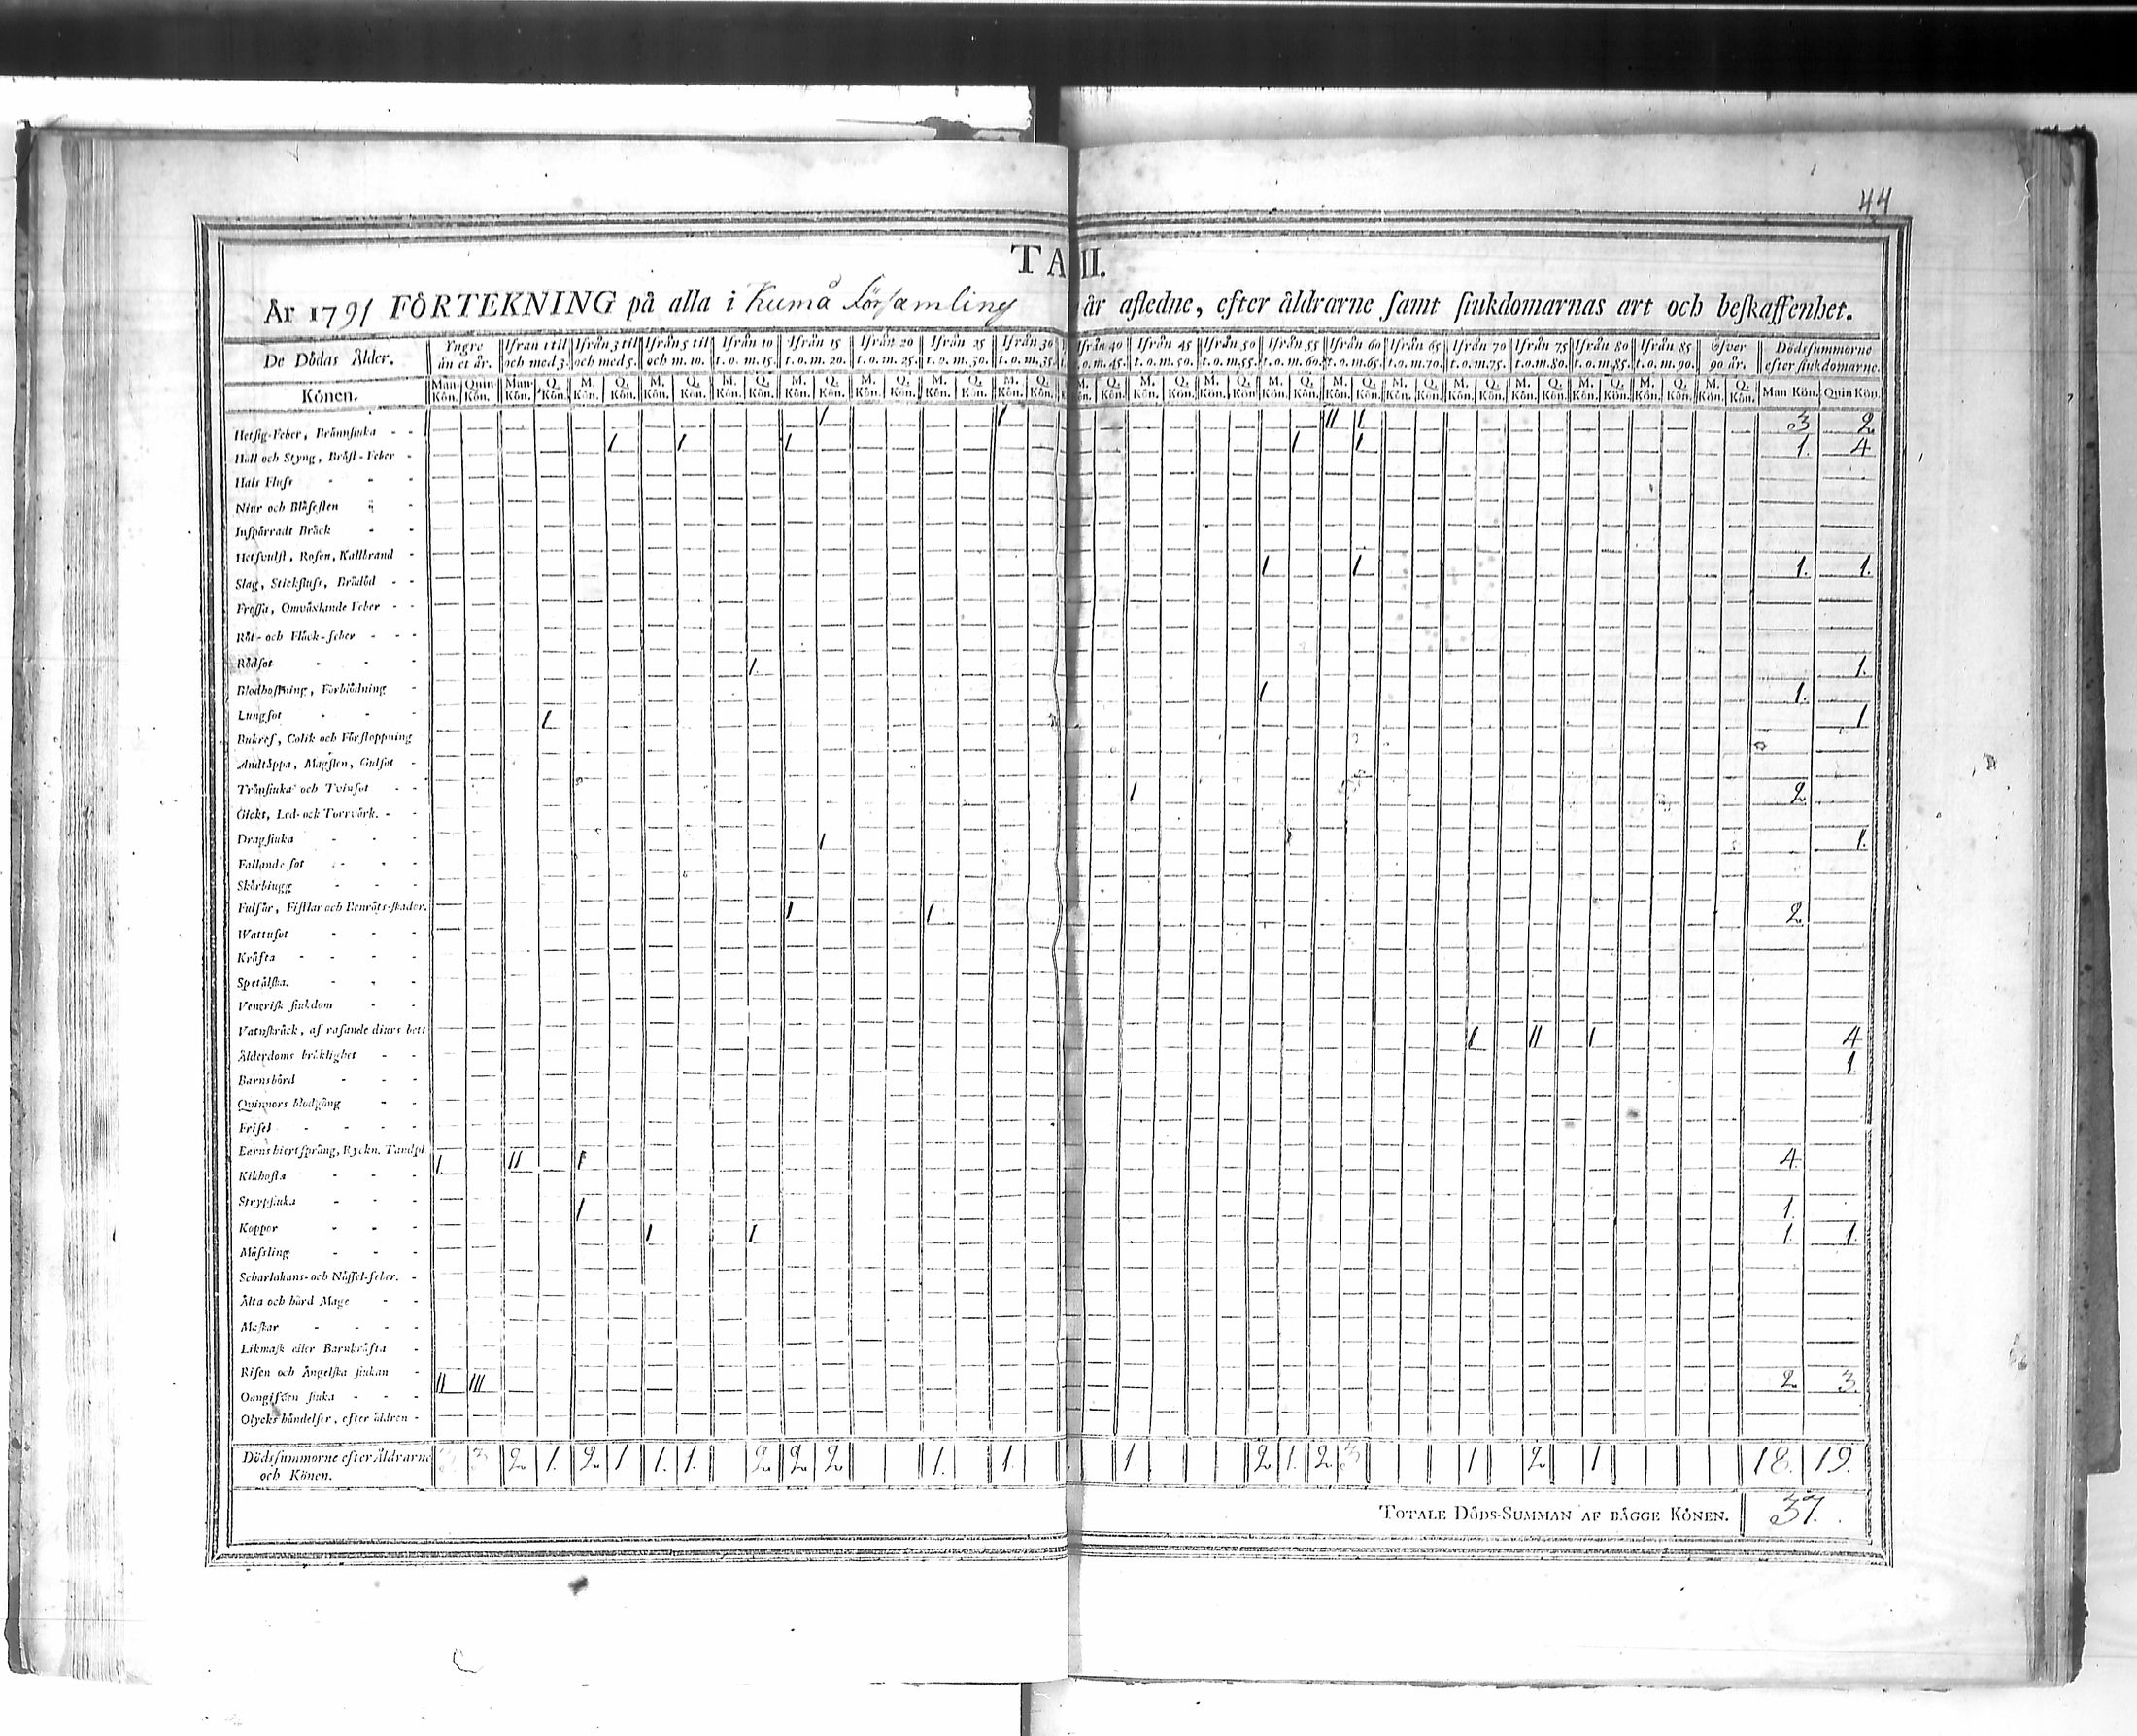 44
TA II.
År 1791 FÖRTEKNING på alla i Kumå Församling år afledne, efter åldrarne samt siukdomarnas art och beskaffenhet.
De Dödas Ålder. Yngre än et år. Ifrån 1 til och med 3. Ifrån 3 til och med 5. Ifrån 5 til och m. 10. Ifrån 10 t. o. m. 15. Ifrån 15 t. o. m. 20. Ifrån 20 t. o. m. 25. Ifrån 25 t. o. m. 30. Ifrån 30 t. o. m. 35. Ifrån 40 t. o. m. 45. Ifrån 45 t. o. m. 50. Ifrån 50 t. o. m. 55. Ifrån 55 t. o. m. 60. Ifrån 60 t. o. m. 65. Ifrån 65 t. o. m. 70. Ifrån 70 t. o. m. 75. Ifrån 75 t. o. m. 80. Ifrån 80 t. o. m. 85. Ifrån 85 t. o. m. 90. öfver 90 år. Dödssummorne efter siukdomarne.
Könen. Man Kön. Quin Kön. Man Kön. Q. Kön. M. Kön. Q. Kön. M. Kön. Q. Kön. M. Kön. Q. Kön. M. Kön. Q. Kön. M. Kön. Q. Kön. M. Kön. Q. Kön. M. Kön. Q. Kön. Kön. Q. Kön. M. Kön. Q. Kön. M. Kön. Q. Kön. M. Kön. Q. Kön. M. Kön. Q. Kön. M. Kön. Q. Kön. M. Kön. Q. Kön. M. Kön. Q. Kön. M. Kön. Q. Kön. M. Kön. Q. Kön. M. Kön. Q. Kön. Man Kön. Quin Kön.
Hetsig-Feber, Brännsiuka - - 1 1 11 1 3 2
Håll och Styng, Bröst-Feber - 1 1 1 1 1 1. 4
Hals Fluss - - -
Niur och Blåsesten -
Inspärradt Bråck - -
Hetsvulst, Rosen, Kallbrand -
Slag, Stickfluss, Brådöd - - 1 1 1. 1.
Frossa, Omväxlande Feber - -
Röt- och Fläck-feber - - -
Rödsot - - - 1. 1.
Blodhostning, Förblödning - 1 1.
Lungsot - - - 1 1
Bukref, Colik och Förstoppning
Andtäppa, Magsten, Gulsot -
Tränsiuka och Tvinsot - - 1 2
Gickt, Led- och Torrvärk. - -
Dragsiuka - - - 1 1.
Fallande sot - - -
Skörbiugg - - -
Fulsår, Fistlar och Benröts-skador. 1 1 2
Wattusot - - -
Kräfta - - - -
Spetälska. - - -
Venerisk siukdom - -
Vatnskräck, af rasande diurs bett
Ålderdoms bräklighet - - 1 11 1 4
Barnsbörd - - - 1
Quinnors blodgång - -
Frisel - - - -
Barns hiertsprång, Ryckn. Tandsl
Kikhosta - - - 1 11 1 4.
Strypsiuka - - -
Koppor - - - 1 1.
Mässling - - - 1 1 1. 1.
Scharlakans- och Nässel-feber. -
Älta och hård Mage - -
Maskar - - - -
Likmask eller Barnkräfta -
Risen och Ängelska siukan -
Oangifven siuka - - - 11 111 2 3.
Olycks händelser, efter åldren -
Dödssummorne efter Åldrarne och Könen. 3 3 2 1. 2 1 1. 1. 2 2 2 1. 1. 1. 2 1. 2 3 1 2 1 18. 19.
TOTALE DÖDS-SUMMAN AF BÄGGE KÖNEN. 37.